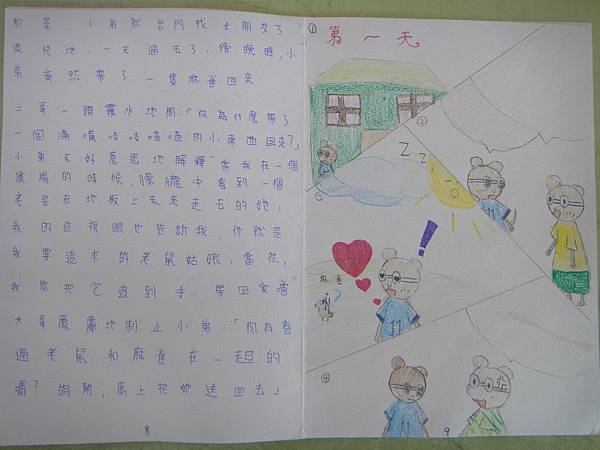 於是,小弟就出門找女朋友了。
很快地,一天過去了,傍晚時,小
弟竟然帶了一隻麻雀回來
二哥一頭霧水地問:「你為什麼帶了
一個滿嘴吱吱喳喳的小東西回來?」
小弟不好意思地解釋"當我在一個
廣場的時候,朦朧中看到一個
老是在地板上走來走去的她,
我的近視眼也告訴我,他就是
我要追求的老鼠姑娘,當然,
我就把它追到手,帶回家嘍"
大哥嚴肅地制止小弟:「你有看
過老鼠和麻雀在一起的
嗎?胡鬧,馬上把她送回去」
8
① 第一天
②
Z Z
11
麻雀
?
!
11
④
11
9